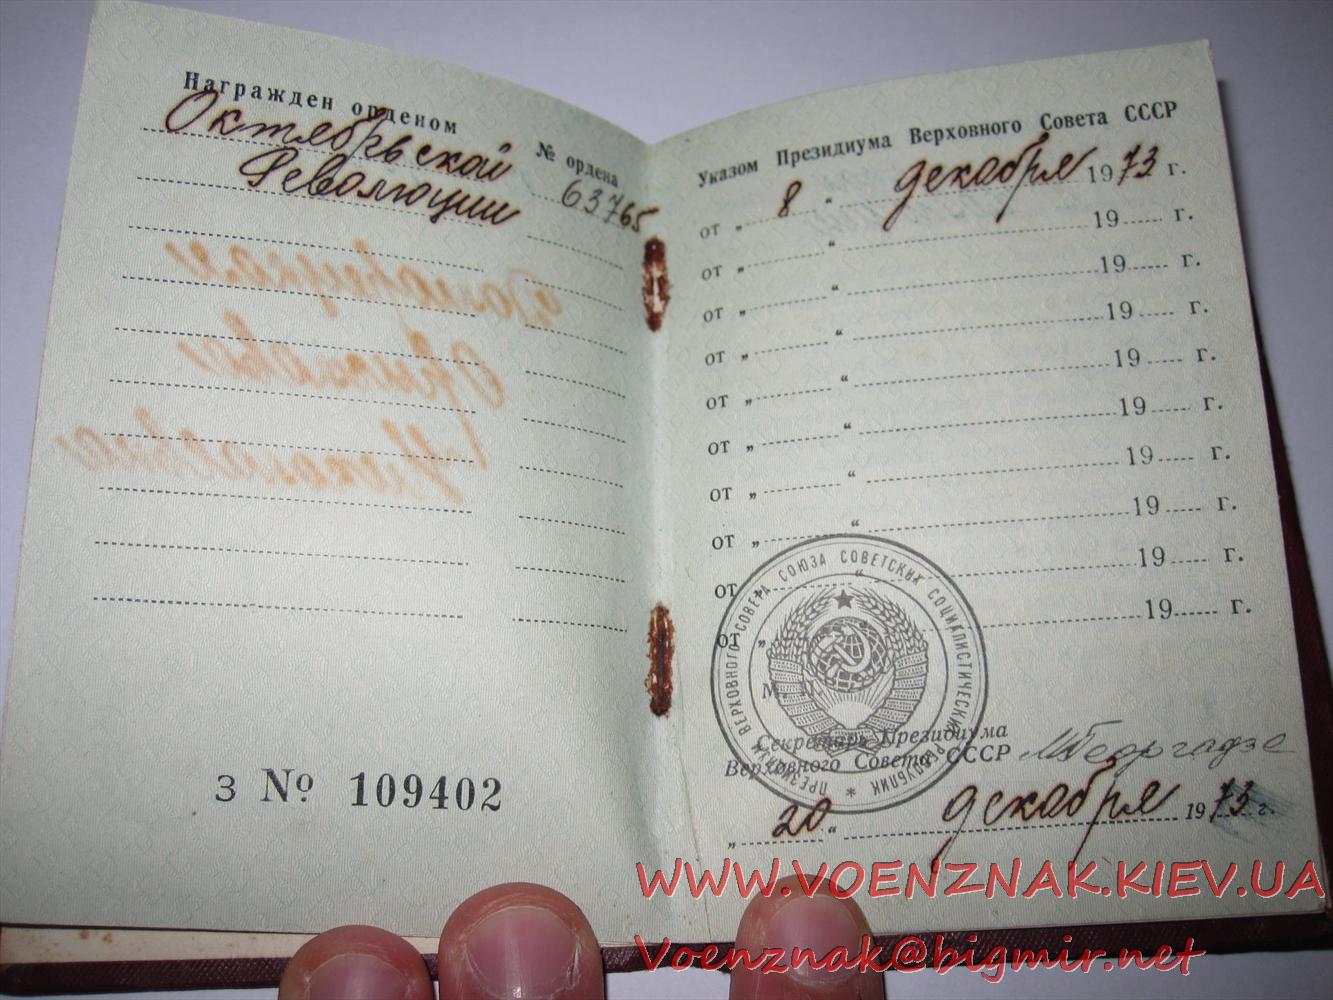 Награжден орденом
Октябрьской
Революции
№ ордена
63765
З № 109402
Указом Президиума Верховного Совета СССР
от „ 8 “ декабря 1973 г.
от „ “ 19 г.
от „ “ 19 г.
от „ “ 19 г.
от „ “ 19 г.
от „ “ 19 г.
от „ “ 19 г.
от „ “ 19 г.
от „ “ 19 г.
от „ 19 г.
ПРЕЗИДИУМ ВЕРХОВНОГО СОВЕТА СОЮЗА СОВЕТСКИХ СОЦИАЛИСТИЧЕСКИХ РЕСПУБЛИК *
М. П.
Секретарь Президиума
Верховного Совета СССР
МГеоргадзе
„ 20 “ декабря 1973 г.
WWW.VOENZNAK.KIEV.UA
Voenznak@bigmir.net